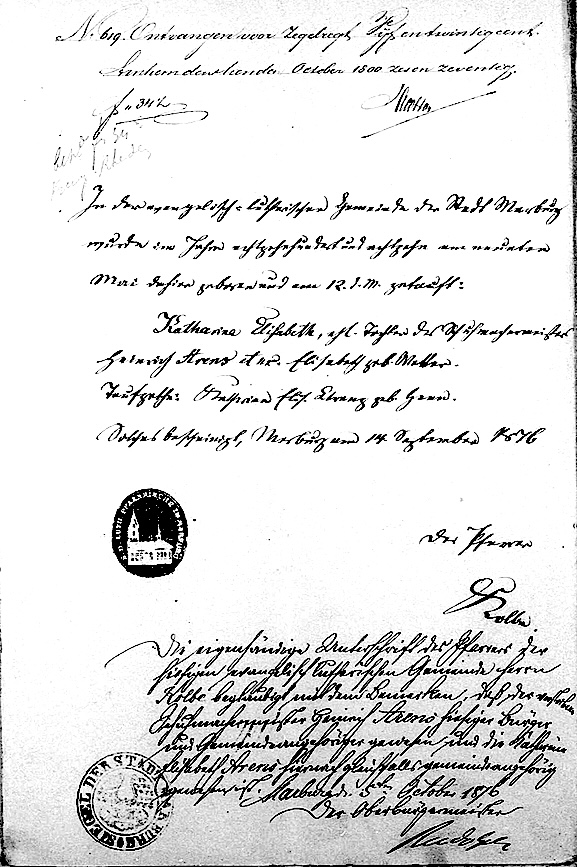 N. 619. Ontvangen voor Zegelregt Vyf en twintig cent.
Arnhem den October 1800 zes en zeventig.
f " 34½
In der evangelisch-lutherischen Gemeinde der Stadt Marburg
wurde im Jahre achtzehnhundert und achtzehn am neunten
Mai dahier geboren und am 12. d. M. getauft:
Katharina Elisabeth, ehl. Tochter des Schuhmachermeisters
Heinrich Arens et ux. Elisabeth geb. Wetter.
Taufpathe: Elis. geb. Henn.
Solches bescheinigt, Marburg am 14 September 1876
EV. LUTH. PFARRKIRCHE MARBURG
Der Pfarrer
Kolbe.
Die eigenhändige Unterschrift des Pfarrers der
hiesigen evangelisch lutherischen Gemeinde Herrn
Kolbe beglaubigt mit dem Bemerken, daß der verstorbene
Schuhmachermeister Heinrich Arens hiesiger Bürger
und Gemeindeangehöriger gewesen und die Katharina
Elisabeth Arens hiernach gleichfalls gemeindeangehörig
gewesen ist. Marburg d. 5ten October 1876
Der Oberbürgermeister
Rudolph
SIEGEL DER STADT MARBURG